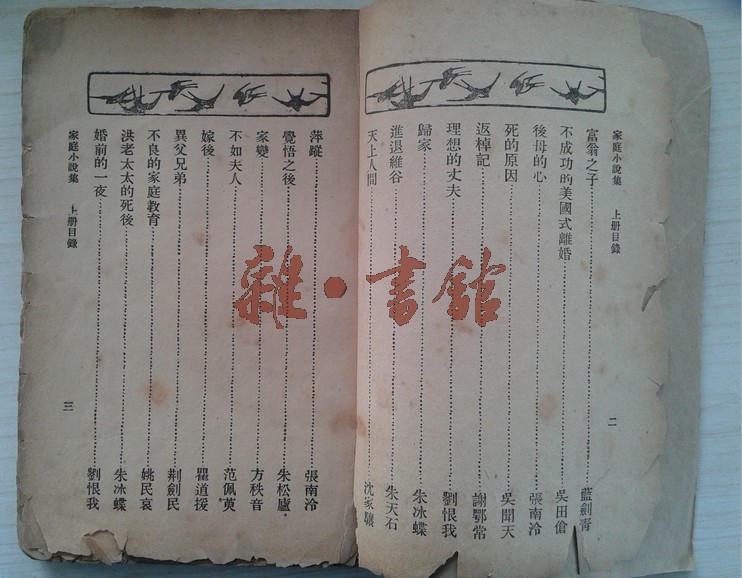 家庭小說集 上册目錄 二
富翁之子 藍劍青
不成功的美國式離婚 吳田傖
後母的心 張南泠
死的原因 吳聞天
返棹記 謝鄂常
理想的丈夫 劉恨我
歸家 朱冰蝶
進退維谷 朱天石
天上人間 沈家驤
萍蹤 張南泠
覺悟之後 朱松廬
家變 方秩音
不如夫人 范佩萸
嫁後 瞿道援
異父兄弟 荆劍民
不良的家庭教育 姚民哀
洪老太太的死後 朱冰蝶
婚前的一夜 劉恨我
家庭小說集 上册目錄 三
雜·書館